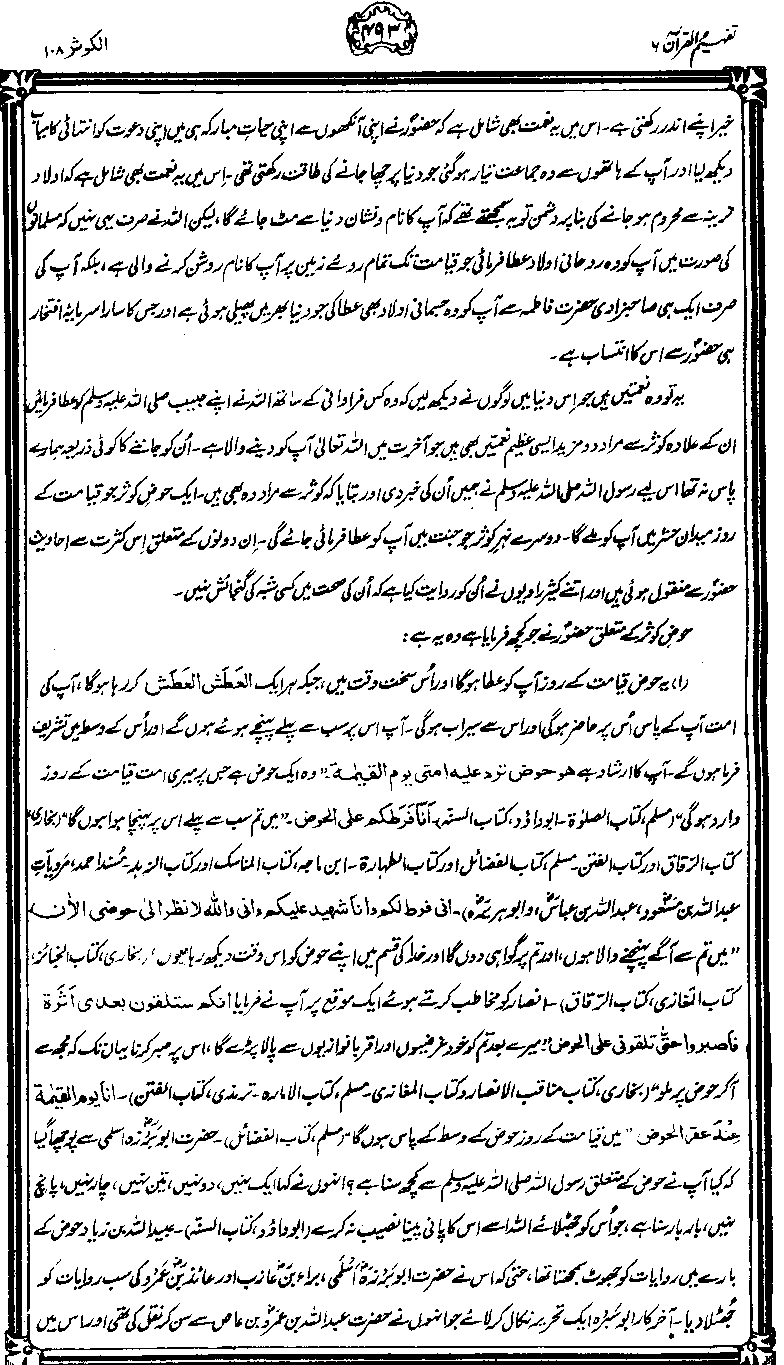 تفہیم القرآن ۶
۴۹۳
الکوثر ۱۰۸
خیر اپنے اندر رکھتی ہے۔ اس میں یہ نعمت بھی شامل ہے کہ حضورؐ نے اپنی آنکھوں سے اپنی حیاتِ مبارکہ ہی میں اپنی دعوت کو انتہائی کامیاب
دیکھ لیا اور آپ کے ہاتھوں سے وہ جماعت تیار ہو گئی جو دنیا پر چھا جانے کی طاقت رکھتی تھی۔ اِس میں یہ نعمت بھی شامل ہے کہ اولادِ
نرینہ سے محروم ہو جانے کی بنا پر دشمن تو یہ سمجھتے تھے کہ آپ کا نام و نشان دنیا سے مٹ جائے گا، لیکن اللہ نے صرف یہی نہیں کہ مسلمانوں
کی صورت میں آپ کو وہ روحانی اولاد عطا فرمائی جو قیامت تک تمام روئے زمین پر آپ کا نام روشن کرنے والی ہے، بلکہ آپ کی
صرف ایک ہی صاحبزادی حضرت فاطمہ سے آپ کو وہ جسمانی اولاد بھی عطا کی جو دنیا بھر میں پھیلی ہوئی ہے اور جس کا سارا سرمایۂ افتخار
ہی حضورؐ سے اس کا انتساب ہے۔
یہ تو وہ نعمتیں ہیں جو اِس دنیا میں لوگوں نے دیکھ لیں کہ وہ کس فراوانی کے ساتھ اللہ نے اپنے حبیب صلی اللہ علیہ وسلم کو عطا فرمائیں
ان کے علاوہ کوثر سے مراد دو مزید ایسی عظیم نعمتیں بھی ہیں جو آخرت میں اللہ تعالیٰ آپ کو دینے والا ہے۔ اُن کو جاننے کا کوئی ذریعہ ہمارے
پاس نہ تھا اس لیے رسول اللہ صلی اللہ علیہ وسلم نے ہمیں اُن کی خبر دی اور بتایا کہ کوثر سے مراد وہ بھی ہیں۔ ایک حوضِ کوثر جو قیامت کے
روز میدانِ حشر میں آپ کو ملے گا۔ دوسرے نہرِ کوثر جو جنت میں آپ کو عطا فرمائی جائے گی۔ اِن دونوں کے متعلق اِس کثرت سے احادیث
حضورؐ سے منقول ہوئی ہیں اور اتنے کثیر راویوں نے اُن کو روایت کیا ہے کہ اُن کی صحت میں کسی شبہ کی گنجائش نہیں۔
حوضِ کوثر کے متعلق حضورؐ نے جو کچھ فرمایا ہے وہ یہ ہے:
(۱) یہ حوض قیامت کے روز آپ کو عطا ہو گا اور اُس سخت وقت میں، جبکہ ہر ایک العَطَش العَطَش کر رہا ہوگا، آپ کی
امت آپ کے پاس اُس پر حاضر ہو گی اور اس سے سیراب ہو گی۔ آپ اس پر سب سے پہلے پہنچے ہوئے ہوں گے اور اُس کے وسط میں تشریف
فرما ہوں گے۔ آپ کا ارشاد ہے ھو حوض ترد علیہ امتی یوم القیٰمۃ۔ "وہ ایک حوض ہے جس پر میری امت قیامت کے روز
وارد ہو گی" (مسلم، کتاب الصلوٰۃ۔ ابوداؤد، کتاب السنہ) أنا فَرَطکم علی الحوض۔ "میں تم سب سے پہلے اس پر پہنچا ہوا ہوں گا" (بخاری،
کتاب الرقاق اور کتاب الفتن۔ مسلم، کتاب الفضائل اور کتاب الطہارۃ۔ ابن ماجہ، کتاب المناسک اور کتاب الزہد۔ مُسند احمد، مرویاتِ
عبداللہ بن مسعودؓ، عبداللہ بن عباسؓ، و ابو ہریرہؓ)۔ انی فرط لکم وانا شہید علیکم وانی واللہ لانظر الی حوضی الأن۔
"میں تم سے آگے پہنچنے والا ہوں، اور تم پر گواہی دوں گا اور خدا کی قسم میں اپنے حوض کو اِس وقت دیکھ رہا ہوں" (بخاری، کتاب الجنائز،
کتاب المغازی، کتاب الرقاق)۔ انصار کو مخاطب کرتے ہوئے ایک موقع پر آپ نے فرمایا انکم ستلقون بعدی أثَرَۃ
فاصبروا حتّٰی تلقونی علی الحوض "میرے بعد تم کو خود غرضیوں اور اقربا نوازیوں سے پالا پڑے گا، اس پر صبر کرنا یہاں تک کہ مجھ سے
آ کر حوض پر ملو" (بخاری، کتاب مناقب الانصار و کتاب المغازی۔ مسلم، کتاب الامارہ۔ ترمذی، کتاب الفتن)۔ انا یوم القیٰمۃ
عِنْدَ عقر الحوض "میں قیامت کے روز حوض کے وسط کے پاس ہوں گا" (مسلم، کتاب الفضائل)۔ حضرت ابو برزہؓ اسلمی سے پوچھا گیا
کہ کیا آپ نے حوض کے متعلق رسول اللہ صلی اللہ علیہ وسلم سے کچھ سنا ہے؟ انہوں نے کہا ایک نہیں، دو نہیں، تین نہیں، چار نہیں، پانچ
نہیں، بار بار سنا ہے، جو اُس کو جھٹلائے اللہ اسے اس کا پانی پینا نصیب نہ کرے (ابو داؤد، کتاب السنہ)۔ عبیداللہ بن زیاد حوض کے
بارے میں روایات کو جھوٹ سمجھتا تھا، حتیٰ کہ اس نے حضرت ابو برزہؓ اسلمی، براء بنؓ عازب اور عائذ بنؓ عمرو کی سب روایات کو
جُھٹلا دیا۔ آخر کار ابو سَبْرہ ایک تحریر نکال کر لائے جو انہوں نے حضرت عبداللہ بن عمروؓ بن عاص سے سن کر نقل کی تھی اور اس میں